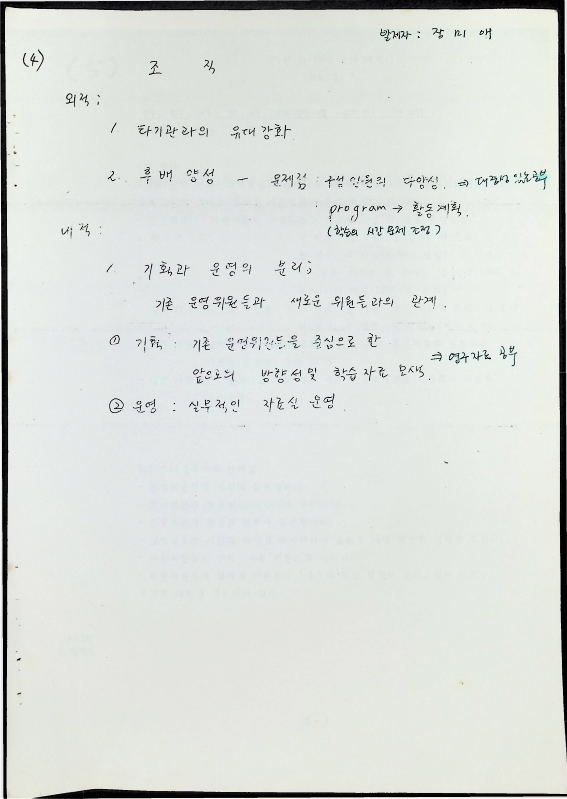 발제자 : 장미애
(4) 조 직
외적 :
1. 타기관과의 유대강화.
2. 후배 양성 — 문제점 : 구성 인원의 다양성. ⇒ 대중성 있는 공부
program → 활동계획.
(학습의 시간문제 조정)
내적 :
1. 기획과 운영의 분리;
기존 운영위원들과 새로운 위원들과의 관계.
① 기획 : 기존 운영위원들을 중심으로 한
앞으로의 방향성및 학습자료 모색. ⇒ 연구자료 공부
② 운영 : 실무적인 자료실 운영.